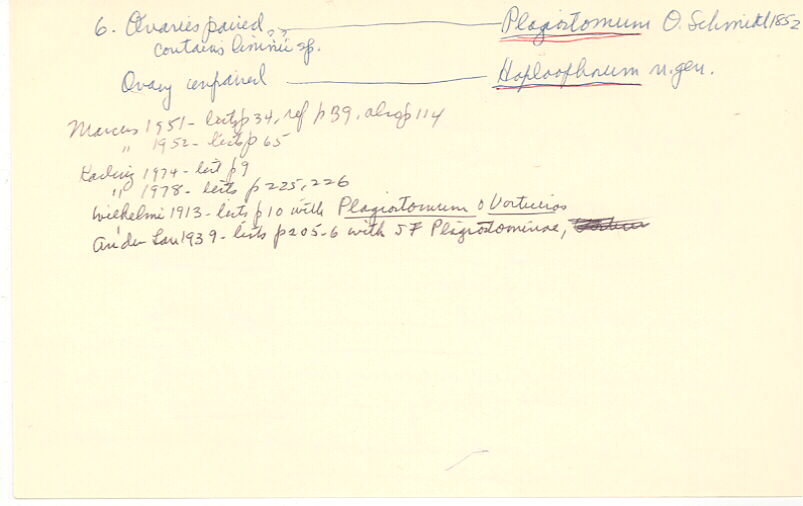 6. Ovaries paired ?? Plagiostomum O. Schmidt 1852
contains limnic sp.
Ovary unpaired Haploophorum n.gen.
Marcus 1951 - lists p 34, ref p 139, also p 114
" 1952 - lists p 65
Karling 1974 - list p 9
" 1978 - lists p 225, 226
Wilhelmi 1913 - lists p 10 with Plagiostomum &
an der Lan 1939 - lists p 205-6 with SF Plagiostominae,